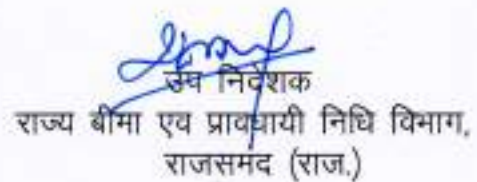 उप निदेशक
राज्य बीमा एव प्रावधायी निधि विभाग,
राजसमंद (राज.)